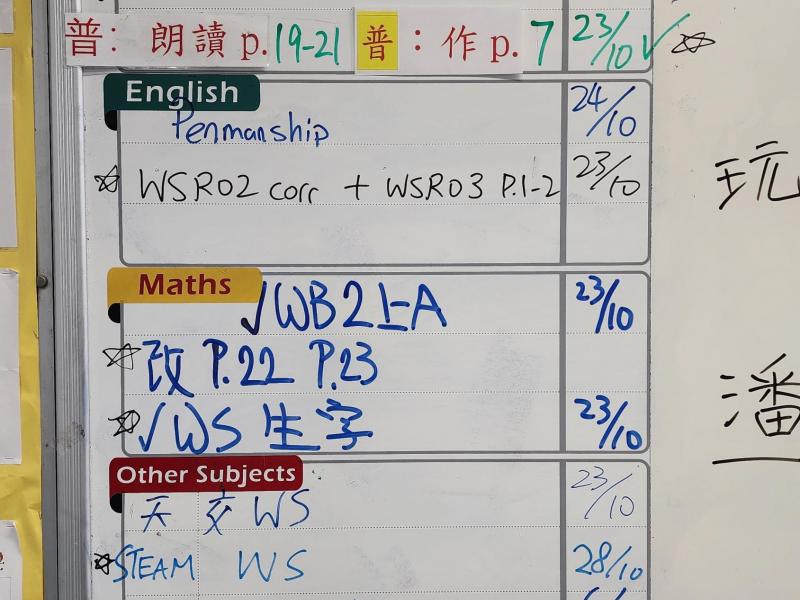 普: 朗讀 p.19-21 普：作 p. 7 23/10 ✓ ☆
English
Penmanship 24/10
☆ WSR02 corr + WSR03 P.1-2 23/10
玩
Maths
√WB2上A 23/10
☆ 改 P.22 P.23
☆ √WS 生字 23/10
潘
Other Subjects
天 交 WS 23/10
☆ STEAM WS 28/10